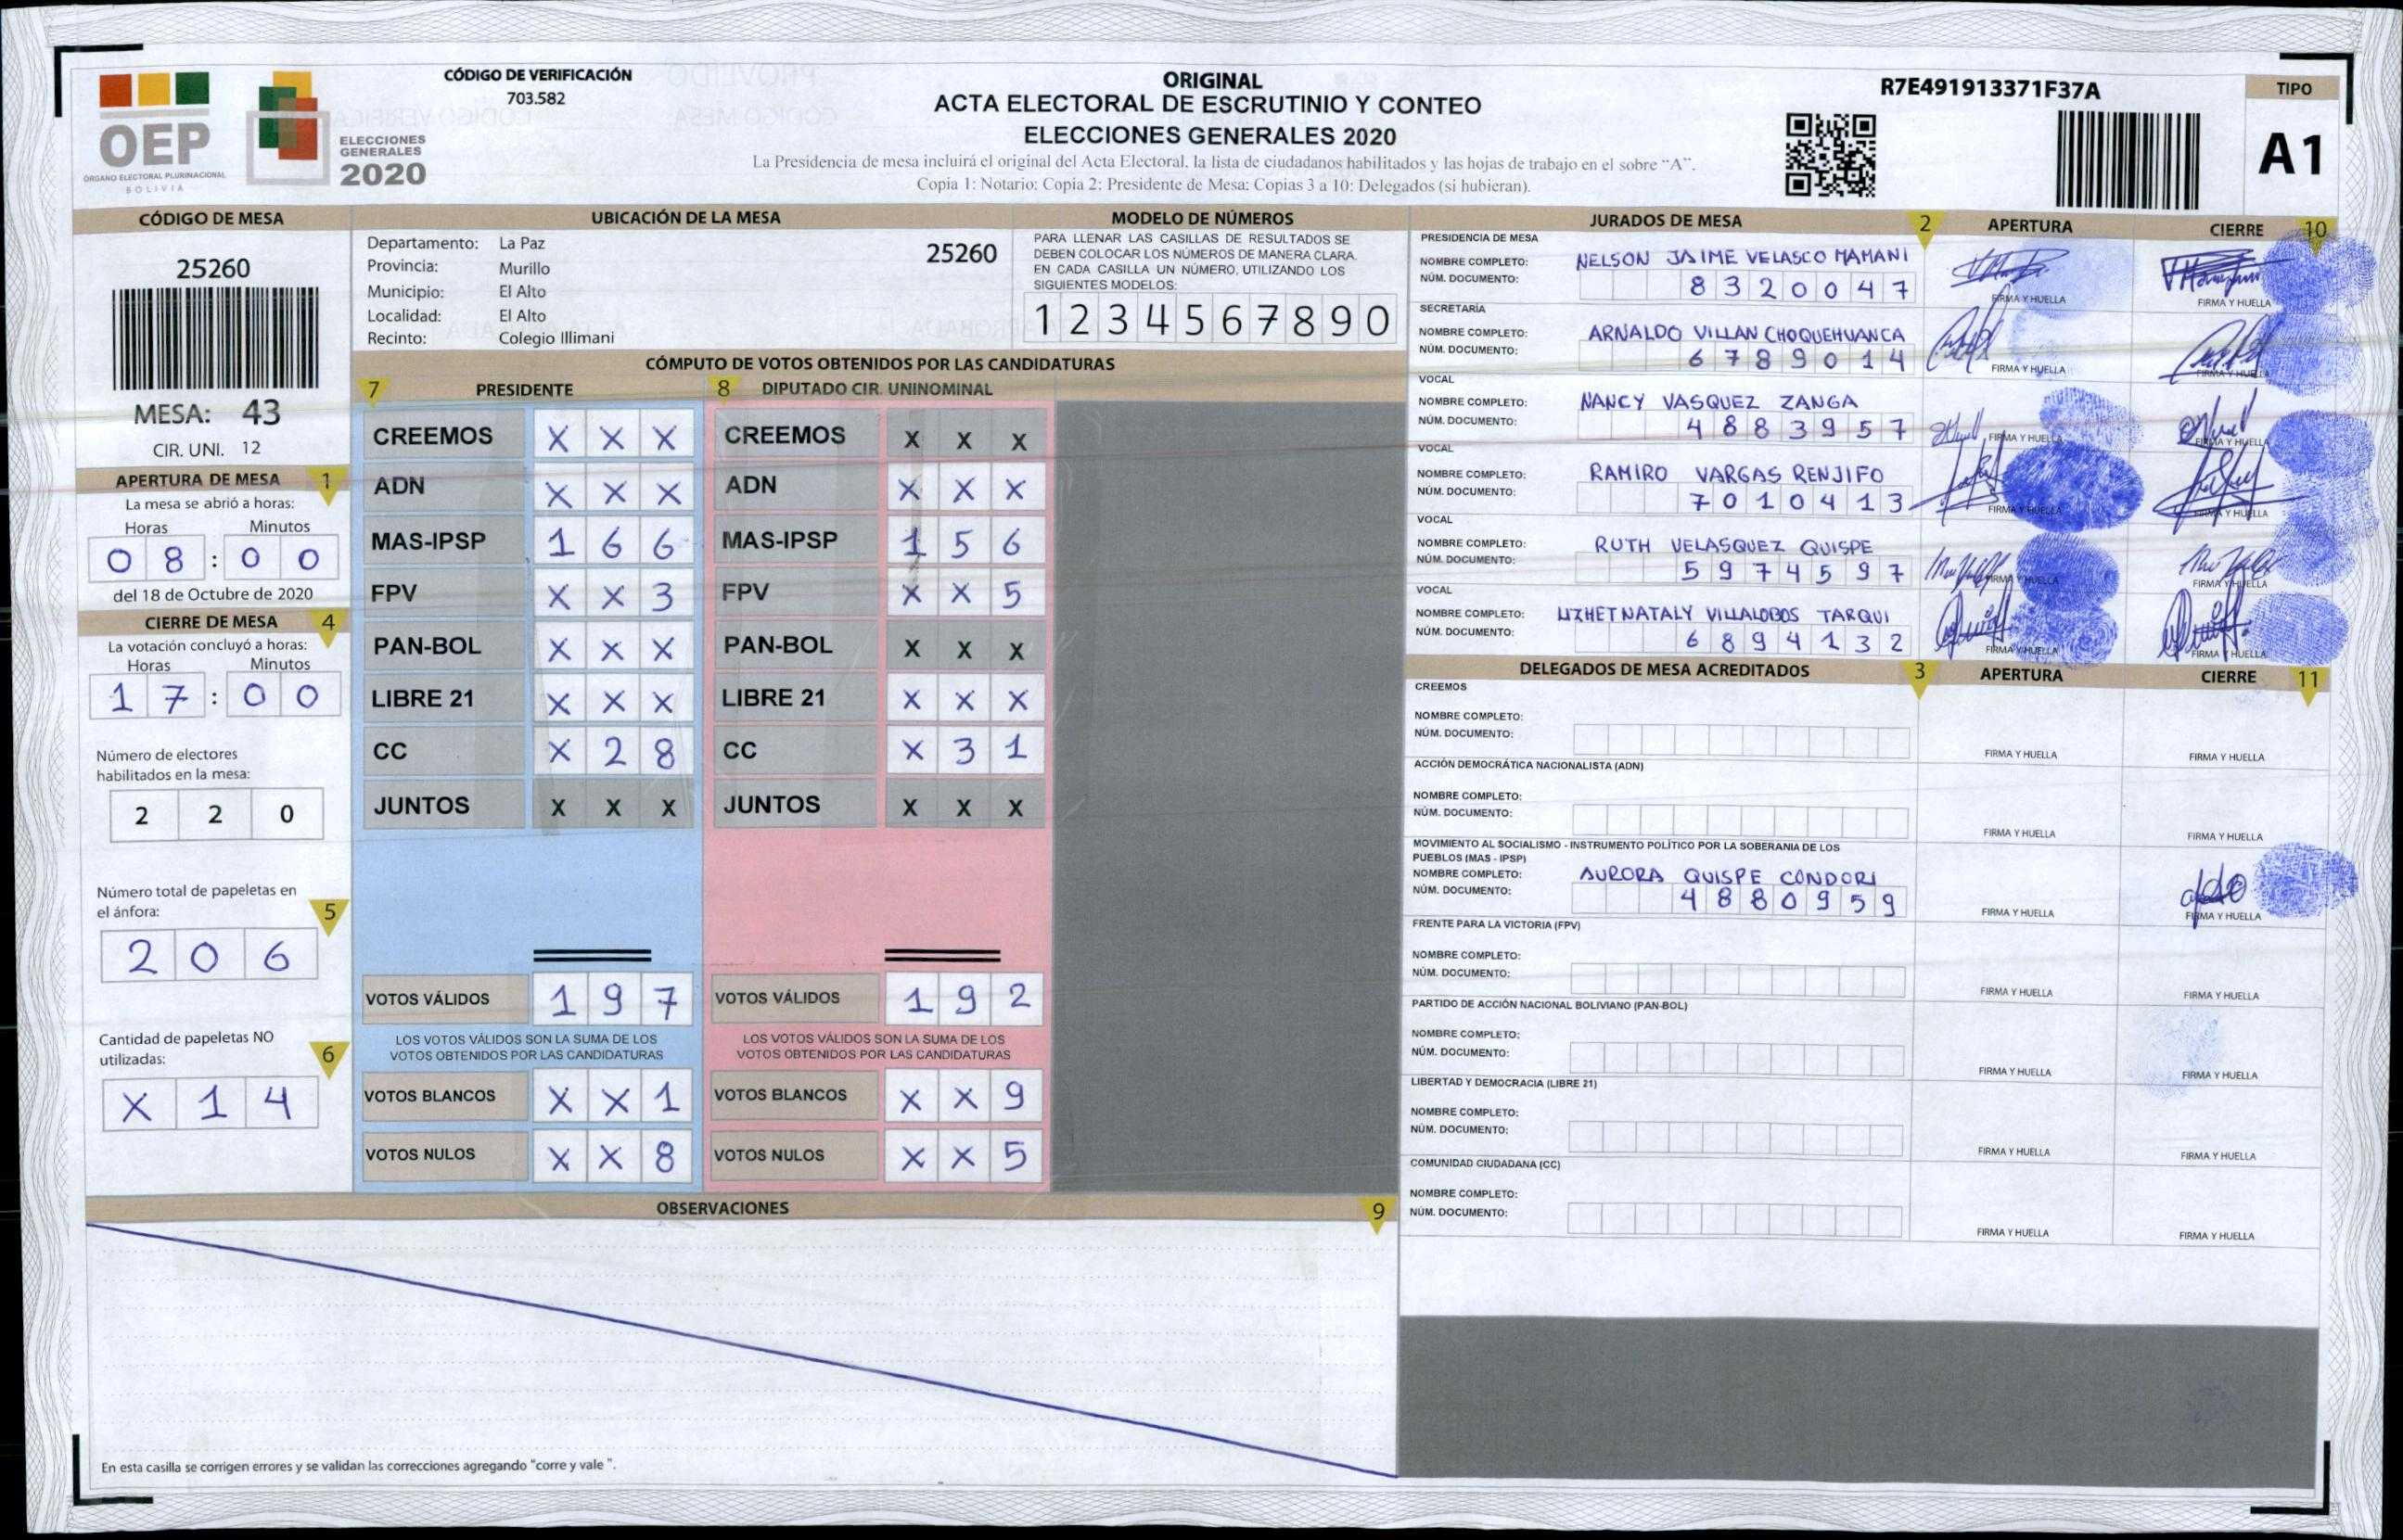 OEP
ÓRGANO ELECTORAL PLURINACIONAL
BOLIVIA
ELECCIONES
GENERALES
2020
CÓDIGO DE VERIFICACIÓN
703.582
ORIGINAL
ACTA ELECTORAL DE ESCRUTINIO Y CONTEO
ELECCIONES GENERALES 2020
La Presidencia de mesa incluirá el original del Acta Electoral, la lista de ciudadanos habilitados y las hojas de trabajo en el sobre “A”.
Copia 1: Notario; Copia 2: Presidente de Mesa; Copias 3 a 10: Delegados (si hubieran).
R7E491913371F37A
TIPO
A1
CÓDIGO DE MESA
25260
MESA: 43
CIR. UNI. 12
APERTURA DE MESA 1
La mesa se abrió a horas:
Horas Minutos
0 8 : 0 0
del 18 de Octubre de 2020
CIERRE DE MESA 4
La votación concluyó a horas:
Horas Minutos
1 7 : 0 0
Número de electores
habilitados en la mesa:
2 2 0
Número total de papeletas en
el ánfora: 5
2 0 6
Cantidad de papeletas NO
utilizadas: 6
X 1 4
UBICACIÓN DE LA MESA
Departamento: La Paz 25260
Provincia: Murillo
Municipio: El Alto
Localidad: El Alto
Recinto: Colegio Illimani
MODELO DE NÚMEROS
PARA LLENAR LAS CASILLAS DE RESULTADOS SE
DEBEN COLOCAR LOS NÚMEROS DE MANERA CLARA.
EN CADA CASILLA UN NÚMERO, UTILIZANDO LOS
SIGUIENTES MODELOS:
1 2 3 4 5 6 7 8 9 0
CÓMPUTO DE VOTOS OBTENIDOS POR LAS CANDIDATURAS
7 PRESIDENTE 8 DIPUTADO CIR. UNINOMINAL
CREEMOS X X X CREEMOS X X X
ADN X X X ADN X X X
MAS-IPSP 1 6 6 MAS-IPSP 1 5 6
FPV X X 3 FPV X X 5
PAN-BOL X X X PAN-BOL X X X
LIBRE 21 X X X LIBRE 21 X X X
CC X 2 8 CC X 3 1
JUNTOS X X X JUNTOS X X X
VOTOS VÁLIDOS 1 9 7 VOTOS VÁLIDOS 1 9 2
LOS VOTOS VÁLIDOS SON LA SUMA DE LOS LOS VOTOS VÁLIDOS SON LA SUMA DE LOS
VOTOS OBTENIDOS POR LAS CANDIDATURAS VOTOS OBTENIDOS POR LAS CANDIDATURAS
VOTOS BLANCOS X X 1 VOTOS BLANCOS X X 9
VOTOS NULOS X X 8 VOTOS NULOS X X 5
OBSERVACIONES 9
En esta casilla se corrigen errores y se validan las correcciones agregando "corre y vale ".
JURADOS DE MESA 2 APERTURA CIERRE 10
PRESIDENCIA DE MESA
NOMBRE COMPLETO: NELSON JAIME VELASCO MAMANI
NÚM. DOCUMENTO: 8 3 2 0 0 4 7
FIRMA Y HUELLA FIRMA Y HUELLA
SECRETARÍA
NOMBRE COMPLETO: ARNALDO VILLAN CHOQUEHUANCA
NÚM. DOCUMENTO: 6 7 8 9 0 1 4
FIRMA Y HUELLA FIRMA Y HUELLA
VOCAL
NOMBRE COMPLETO: NANCY VASQUEZ ZANGA
NÚM. DOCUMENTO: 4 8 8 3 9 5 7
FIRMA Y HUELLA FIRMA Y HUELLA
VOCAL
NOMBRE COMPLETO: RAMIRO VARGAS RENJIFO
NÚM. DOCUMENTO: 7 0 1 0 4 1 3
FIRMA Y HUELLA FIRMA Y HUELLA
VOCAL
NOMBRE COMPLETO: RUTH VELASQUEZ QUISPE
NÚM. DOCUMENTO: 5 9 7 4 5 9 7
FIRMA Y HUELLA FIRMA Y HUELLA
VOCAL
NOMBRE COMPLETO: LIZHET NATALY VILLALOBOS TARQUI
NÚM. DOCUMENTO: 6 8 9 4 1 3 2
FIRMA Y HUELLA FIRMA Y HUELLA
DELEGADOS DE MESA ACREDITADOS 3 APERTURA CIERRE 11
CREEMOS
NOMBRE COMPLETO:
NÚM. DOCUMENTO:
FIRMA Y HUELLA FIRMA Y HUELLA
ACCIÓN DEMOCRÁTICA NACIONALISTA (ADN)
NOMBRE COMPLETO:
NÚM. DOCUMENTO:
FIRMA Y HUELLA FIRMA Y HUELLA
MOVIMIENTO AL SOCIALISMO - INSTRUMENTO POLÍTICO POR LA SOBERANIA DE LOS
PUEBLOS (MAS - IPSP)
NOMBRE COMPLETO: AURORA QUISPE CONDORI
NÚM. DOCUMENTO: 4 8 8 0 9 5 9
FIRMA Y HUELLA FIRMA Y HUELLA
FRENTE PARA LA VICTORIA (FPV)
NOMBRE COMPLETO:
NÚM. DOCUMENTO:
FIRMA Y HUELLA FIRMA Y HUELLA
PARTIDO DE ACCIÓN NACIONAL BOLIVIANO (PAN-BOL)
NOMBRE COMPLETO:
NÚM. DOCUMENTO:
FIRMA Y HUELLA FIRMA Y HUELLA
LIBERTAD Y DEMOCRACIA (LIBRE 21)
NOMBRE COMPLETO:
NÚM. DOCUMENTO:
FIRMA Y HUELLA FIRMA Y HUELLA
COMUNIDAD CIUDADANA (CC)
NOMBRE COMPLETO:
NÚM. DOCUMENTO:
FIRMA Y HUELLA FIRMA Y HUELLA